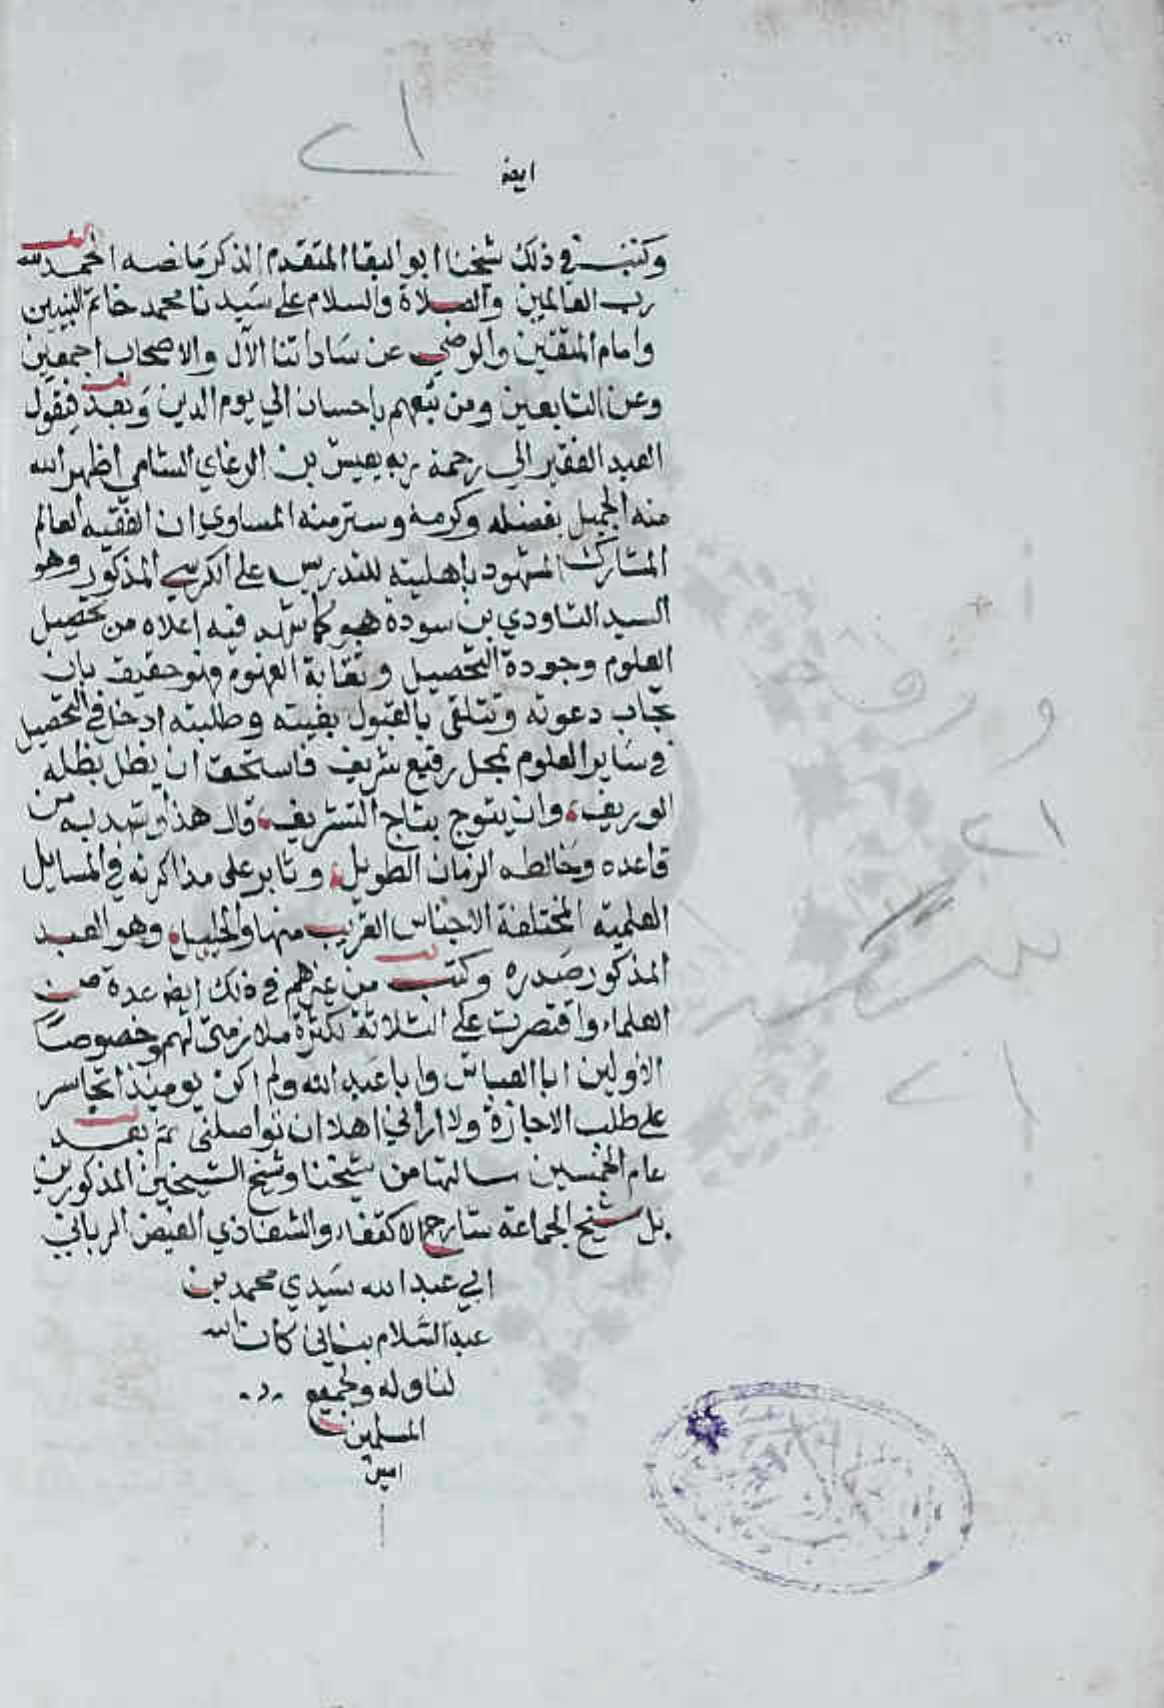 ايضا
وكتب في ذلك شيخنا ابو البقا المتقدم الذكر ما نصه الحمد لله
رب العالمين والصلاة والسلام على سيدنا محمد خاتم النبيين
وامام المتقين والرضي عن ساداتنا الآل والاصحاب اجمعين
وعن التابعين ومن تبعهم باحسان الي يوم الدين وبعد فيقول
العبد الفقير الي رحمة ربه يعيش بن الرغاي الشامي اظهر الله
منه الجميل بفضله وكرمه وستر منه المساوي ان الفقيه العالم
المشارك المشهود باهليته للتدريس على الكرسي المذكور وهو
السيد التاودي بن سودة هو كما شهد فيه اعلاه من تحصيل
العلوم وجودة التحصيل وثقابة الفهوم فهو حقيق بان
تجاب دعوته وتتلقى بالقبول بغيته وطلبته ادخل في التحصيل
في ساير العلوم بمحل رفيع شريف فاستحق ان يظل بظله
الوريف وان يتوج بتاج التشريف قال هذا وشهد به من
قاعده وخالطه الزمان الطويل وثابر على مذاكرته في المسايل
العلمية المختلفة الاجناس القريب منها والجليل وهو العبد
المذكور صدره وكتب من غيرهم في ذلك ايضا عدة من
العلماء واقتصرت على الثلاثة لكثرة ملازمتي لهم وخصوصا
الاولين ابا العباس وابا عبد الله ولم اكن يوميذ اتجاسر
على طلب الاجازة ولا اراني اهلا ان نواصلني ثم بعد
عام الخمسين سالتها من شيخنا وشيخ الشيخين المذكورين
بل شيخ الجماعة شارح الاكتفاء والشفا ذي الفيض الرباني
ابي عبد الله سيدي محمد بن
عبد السلام بناني كان الله
لنا وله ولجميع
المسلمين
امين